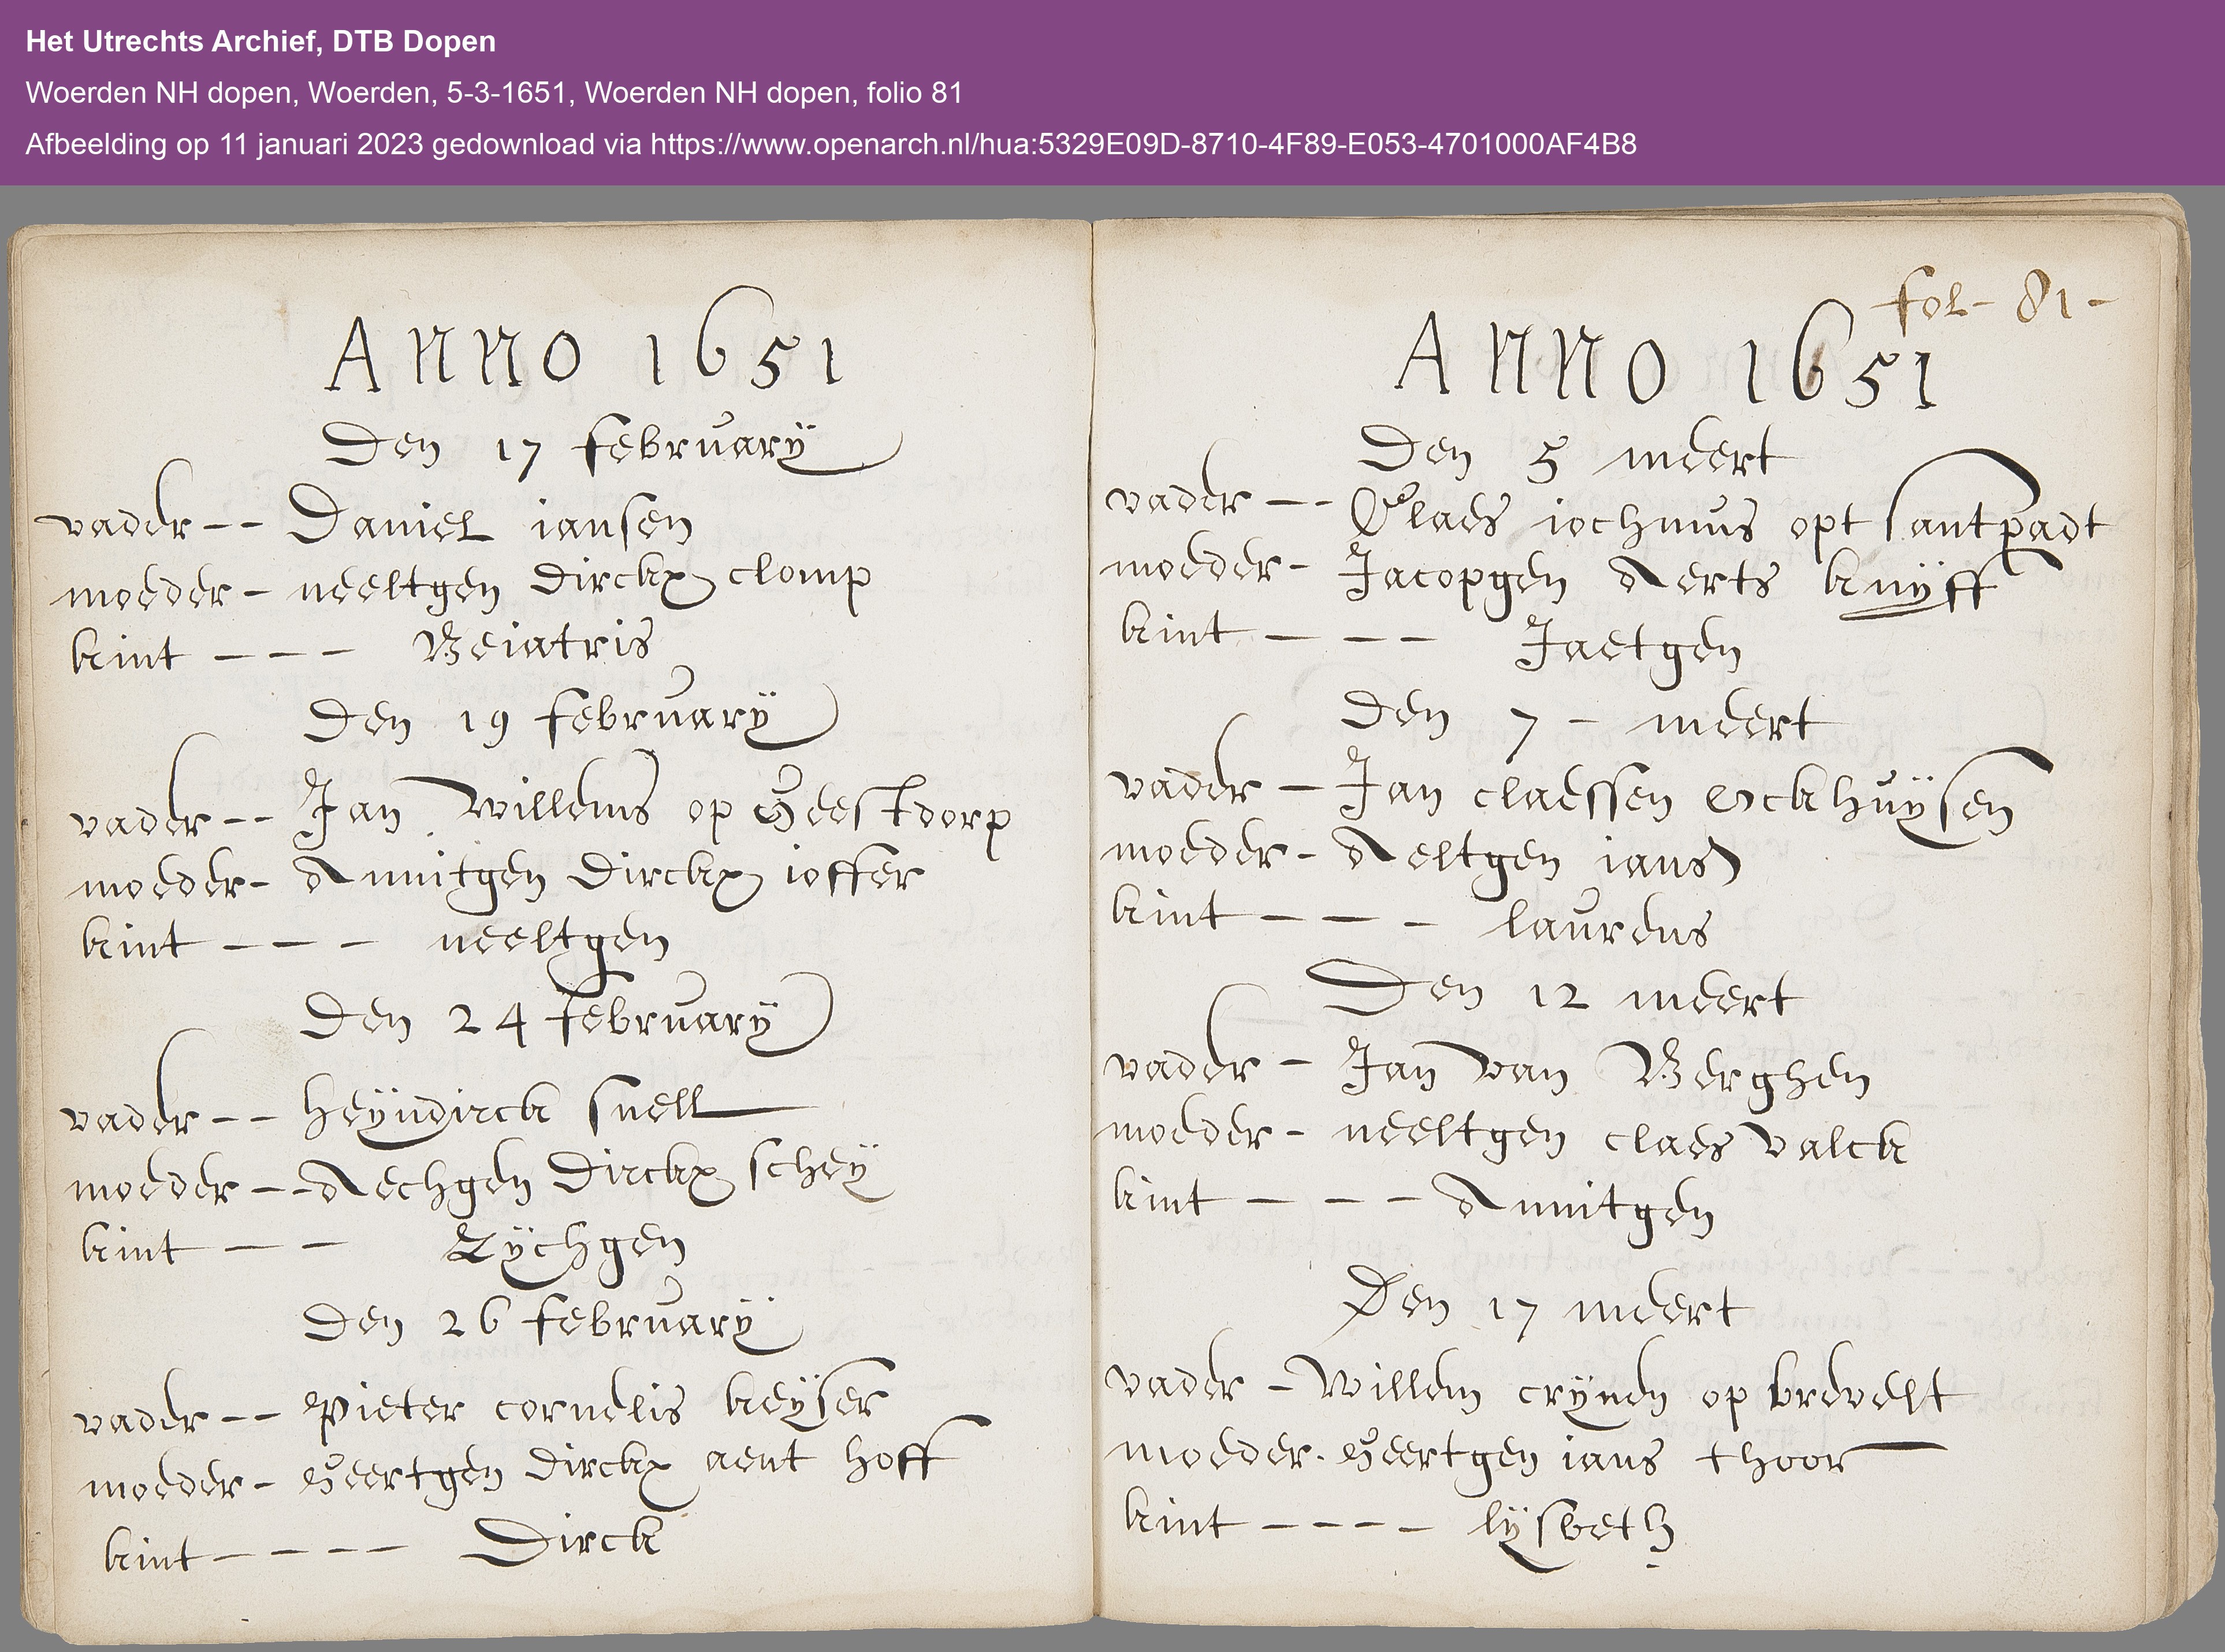 Het Utrechts Archief, DTB Dopen
Woerden NH dopen, Woerden, 5-3-1651, Woerden NH dopen, folio 81
Afbeelding op 11 januari 2023 gedownload via https://www.openarch.nl/hua:5329E09D-8710-4F89-E053-4701000AF4B8
ANNO 1651
Den 17 february
vader -- Daniel iansen
moeder - neeltgen Dirckx clomp
kint --- Beiatris
Den 19 february
vader -- Jan Willems op Geestdorp
moeder - Annitgen Dirckx ioffer
kint --- neeltgen
Den 24 february
vader -- heÿndirck snell
moeder -- Aechgen Dirckx scheÿ
kint -- Zÿchgen
Den 26 februarÿ
vader -- Pieter cornelis keÿser
moeder - Geertgen Dirckx aent hoff
kint ---- Dirck
fol - 81 -
ANNO 1651
Den 5 meert
vader -- Claes iochmus opt santpadt
moeder - Jacopgen Aerts knÿff
kint --- Jaetgen
Den 7 - meert
vader - Jan claessen Ockhuÿsen
moeder - Aeltgen ians
kint --- laurens
Den 12 meert
vader - Jan van Berghen
moeder - neeltgen claes valck
kint --- Annitgen
Den 17 meert
vader - Willem crÿnen op brevelt
moeder . Geertgen ians thoor
kint ---- lÿsbeth